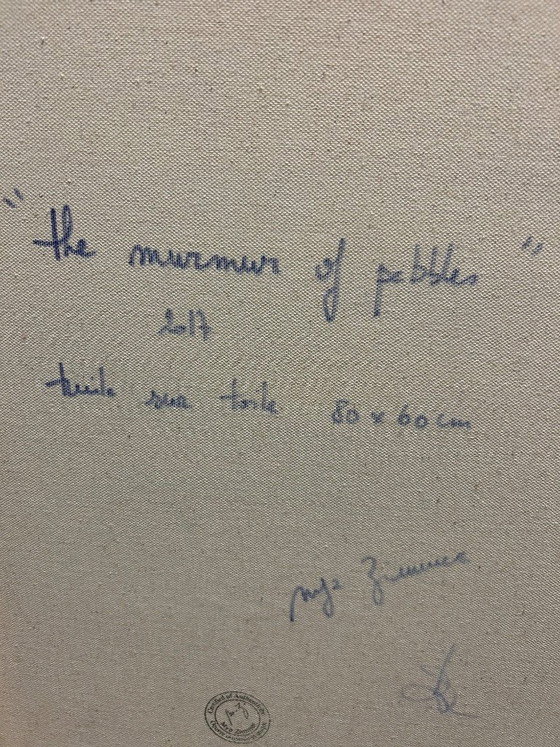 "the murmur of pebbles"
2017
huile sur toile 80 x 60 cm